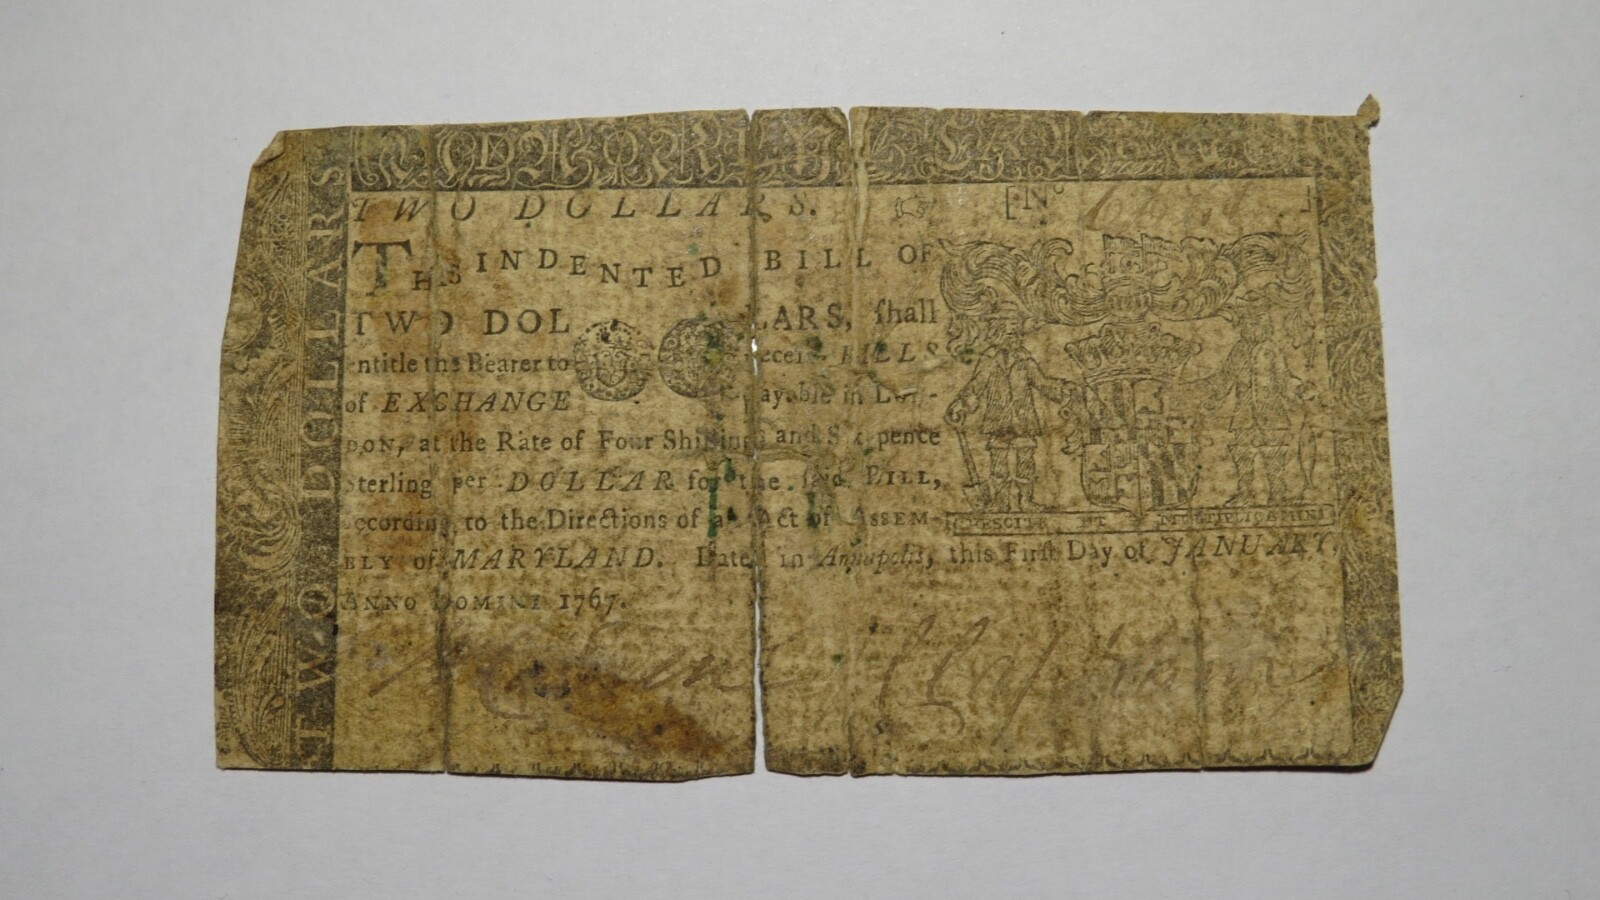 TWO DOLLARS
TWO DOLLARS. [No ]
THIS INDENTED BILL OF
TWO DOL LARS, ſhall
ntitle the Bearer to BILLS
of EXCHANGE ayable in Lon-
DON, at the Rate of Four Shillings and Sixpence
Sterling per DOLLAR for the ſaid BILL,
ccording to the Directions of an Act of ASSEM-
BLY of MARYLAND. Dated in Annapolis, this Firſt Day of JANUARY,
ANNO DOMINI 1767.
CRESCITE ET MULTIPLICAMINI